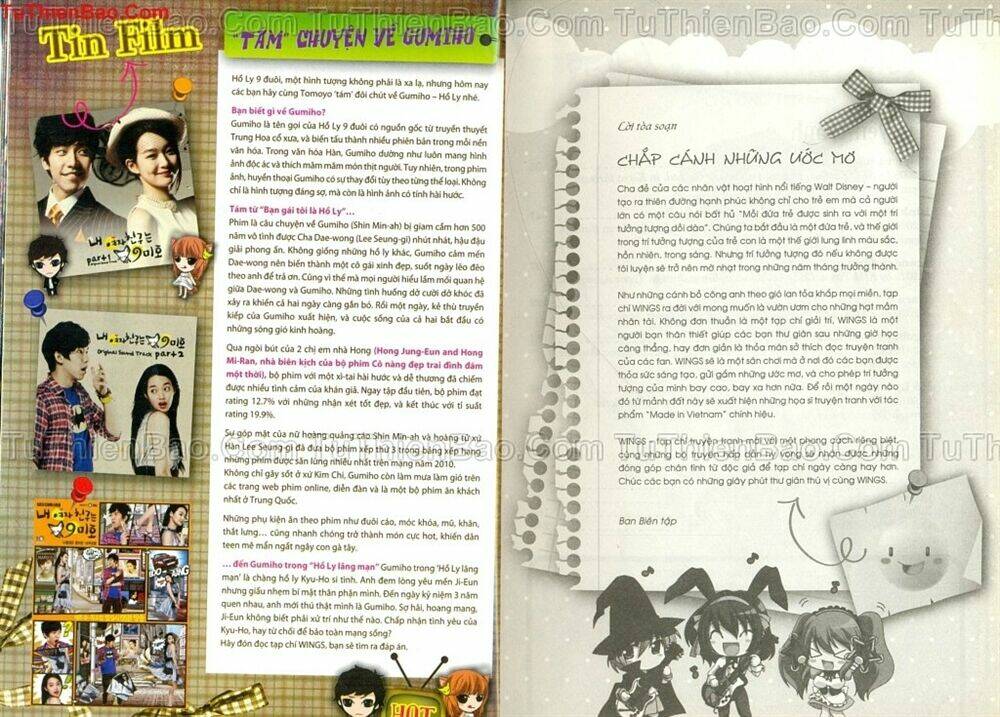 TuThienBao.Com TuThienBao.Com TuThienBao.Com TuThienBao.Com
TuThienBao.Com
Tin Film
"TÁM" CHUYỆN VỀ GUMIHO
Hồ Ly 9 đuôi, một hình tượng không phải là xa lạ, nhưng hôm nay
các bạn hãy cùng Tomoyo 'tám' đôi chút về Gumiho – Hồ Ly nhé.
Bạn biết gì về Gumiho?
Gumiho là tên gọi của Hồ Ly 9 đuôi có nguồn gốc từ truyền thuyết
Trung Hoa cổ xưa, và biến tấu thành nhiều phiên bản trong mỗi nền
văn hóa. Trong văn hóa Hàn, Gumiho dường như luôn mang hình
ảnh độc ác và thích mằm mằm món thịt người. Tuy nhiên, trong phim
ảnh, huyền thoại Gumiho có sự thay đổi tùy theo từng thể loại. Không
chỉ là hình tượng đáng sợ, mà còn là hình ảnh có tính hài hước.
Tám từ "Bạn gái tôi là Hồ Ly"...
Phim là câu chuyện về Gumiho (Shin Min-ah) bị giam cầm hơn 500
năm vô tình được Cha Dae-wong (Lee Seung-gi) nhút nhát, hậu đậu
giải phong ấn. Không giống những hồ ly khác, Gumiho cảm mến
Dae-wong nên biến thành một cô gái xinh đẹp, suốt ngày lẽo đẽo
theo anh để trả ơn. Cũng vì thế mà mọi người hiểu lầm mối quan hệ
giữa Dae-wong và Gumiho. Những tình huống dở cười dở khóc đã
xảy ra khiến cả hai ngày càng gắn bó. Rồi một ngày, kẻ thù truyền
kiếp của Gumiho xuất hiện, và cuộc sống của cả hai bắt đầu có
những sóng gió kinh hoàng.
Qua ngòi bút của 2 chị em nhà Hong (Hong Jung-Eun and Hong
Mi-Ran, nhà biên kịch của bộ phim Cô nàng đẹp trai đình đám
một thời), bộ phim với một xì-tai hài hước và dễ thương đã chiếm
được nhiều tình cảm của khán giả. Ngay tập đầu tiên, bộ phim đạt
rating 12.7% với những nhận xét tốt đẹp, và kết thúc với tỉ suất
rating 19.9%.
Sự góp mặt của nữ hoàng quảng cáo Shin Min-ah và hoàng tử xứ
Hàn Lee Seung-gi đã đưa bộ phim xếp thứ 3 trong bảng xếp hạng
những phim được săn lùng nhiều nhất trên mạng năm 2010.
Không chỉ gây sốt ở xứ Kim Chi, Gumiho còn làm mưa làm gió trên
các trang web phim online, diễn đàn và là một bộ phim ăn khách
nhất ở Trung Quốc.
Những phụ kiện ăn theo phim như đuôi cáo, móc khóa, mũ, khăn,
thắt lưng... cũng nhanh chóng trở thành món cực hot, khiến dân
teen mê mẩn ngất ngây con gà tây.
... đến Gumiho trong "Hồ Ly lãng mạn" Gumiho trong 'Hồ Ly lãng
mạn' là chàng hồ ly Kyu-Ho si tình. Anh đem lòng yêu mến Ji-Eun
nhưng giấu nhẹm bí mật thân phận mình. Đến ngày kỷ niệm 3 năm
quen nhau, anh mới thú thật mình là Gumiho. Sợ hãi, hoang mang,
Ji-Eun không biết phải xử trí như thế nào. Chấp nhận tình yêu của
Kyu-Ho, hay từ chối để bảo toàn mạng sống?
Hãy đón đọc tạp chí WINGS, bạn sẽ tìm ra đáp án.
내 여자친구는
9미호
part1
내 여자친구는
9미호
Original Sound Track part2
내 여자친구는
9미호
HOT
Lời tòa soạn
CHẮP CÁNH NHỮNG ƯỚC MƠ
Cha đẻ của các nhân vật hoạt hình nổi tiếng Walt Disney – người
tạo ra thiên đường hạnh phúc không chỉ cho trẻ em mà cả người
lớn có một câu nói bất hủ "Mỗi đứa trẻ được sinh ra với một trí
tưởng tượng dồi dào". Chúng ta bắt đầu là một đứa trẻ, và thế giới
trong trí tưởng tượng của trẻ con là một thế giới lung linh màu sắc,
hồn nhiên, trong sáng. Nhưng trí tưởng tượng đó nếu không được
tôi luyện sẽ trở nên mờ nhạt trong những năm tháng trưởng thành.
Như những cánh bồ công anh theo gió lan tỏa khắp mọi miền, tạp
chí WINGS ra đời với mong muốn là vườn ươm cho những hạt mầm
nhân tài. Không đơn thuần là một tạp chí giải trí, WINGS là một
người bạn thân thiết giúp các bạn thư giãn sau những giờ học
căng thẳng, hay đơn giản là thỏa mãn sở thích đọc truyện tranh
của các fan. WINGS sẽ là một sân chơi mà ở nơi đó các bạn được
thỏa sức sáng tạo, gửi gắm những ước mơ, và cho phép trí tưởng
tượng của mình bay cao, bay xa hơn nữa. Để rồi một ngày nào
đó từ mảnh đất này sẽ xuất hiện những họa sĩ truyện tranh với tác
phẩm "Made in Vietnam" chính hiệu.
WINGS – tạp chí truyện tranh mới với một phong cách riêng biệt,
cùng những bộ truyện hấp dẫn hy vọng sẽ nhận được những
đóng góp chân tình từ độc giả để tạp chí ngày càng hay hơn.
Chúc các bạn có những giây phút thư giãn thú vị cùng WINGS.
Ban Biên tập
TuThienBao.Com TuThienBao.Com TuThienBao.Com TuThienBao.Com